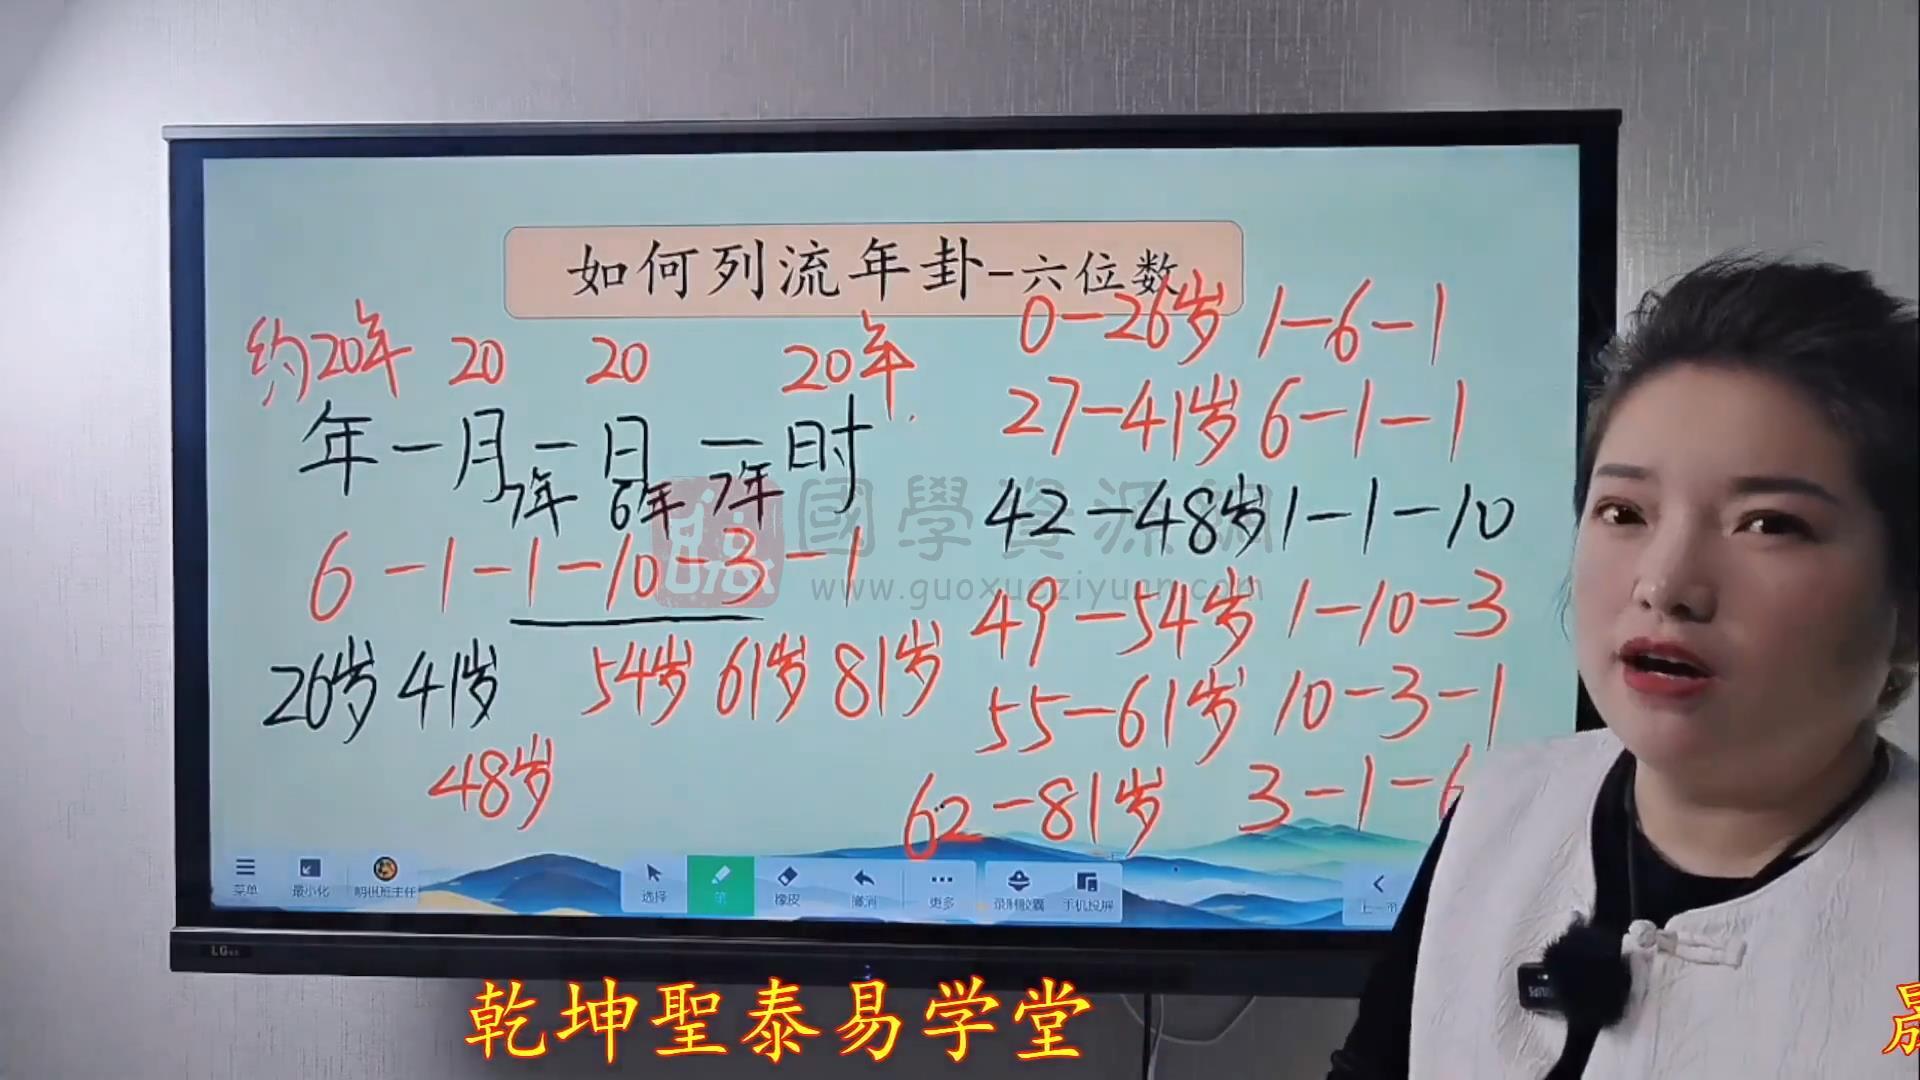 如何列流年卦-六位数
约20年 20 20 20年
年一月一日一时
7年 6年 7年
6-1-1-10-3-1
26岁 41岁 54岁 61岁 81岁
48岁
0-26岁 1-6-1
27-41岁 6-1-1
42-48岁 1-1-10
49-54岁 1-10-3
55-61岁 10-3-1
62-81岁 3-1-6
國學資源網
www.guoxueziyuan.com
菜单 最小化 选择 笔 橡皮 撤消 更多 录制胶囊 手机投屏
乾坤聖泰易学堂